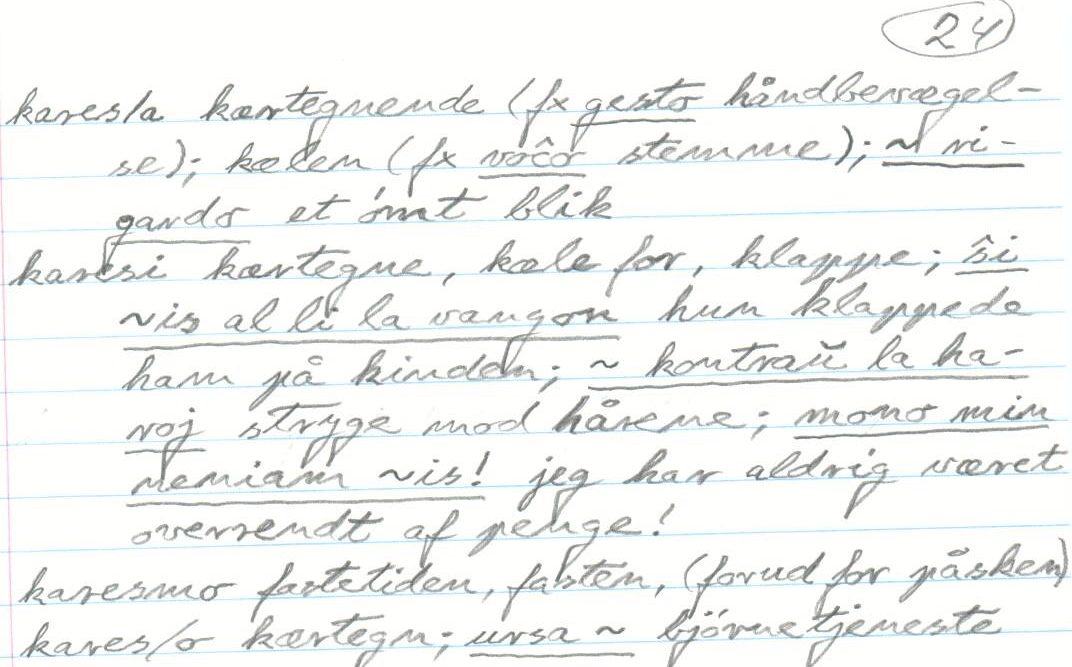 24
kares/a kærtegnende (fx gesto håndbevægel-
se); kælen (fx voĉo stemme); ~ ri-
gardo et ómt blik
karesi kærtegne, kæle for, klappe; ŝi
~is al li la vangon hun klappede
ham på kinden; ~ kontraŭ la ha-
roj stryge mod hårene; mono min
neniam ~is! jeg har aldrig været
overrendt af penge!
karesmo fastetiden, fasten, (forud for påsken)
kares/o kærtegn; ursa ~ bjórnetjeneste